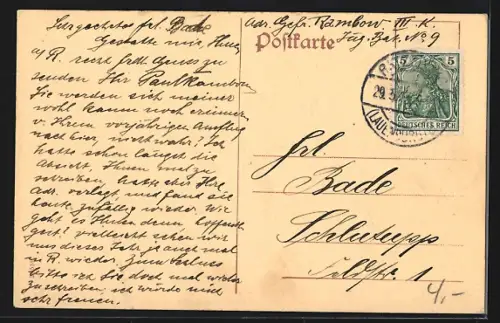 Sehr geehrtes Frl. Bade
Gestatte mir, Ihnen
a/R. recht frdl. Gruss zu
senden. Ihr Paul Rambow
Sie werden sich meiner
wohl kaum noch erinnern
v. Ihrem vorjährigen Ausflug
nach hier, nicht wahr. Ich
hatte schon längst die
Absicht, Ihnen mal zu
schreiben hatte aber Ihre
Adr. verlegt, und fand sie
heute zufällig wieder. Wie
geht es Ihnen denn, hoffentl.
gut! vielleicht sehen wir
uns dieses Jahr ja auch mal
in R. wieder. Zum Schluss
bitte ich Sie doch mal wieder
zu schreiben. ich würde mich
sehr freuen.
Adr. Gefr. Rambow III. K.
Jäg. Bat. No 9
Postkarte
5 5
DEUTSCHES REICH
29.
Frl.
Bade
Schlutupp
Feldstr. 1
4,-